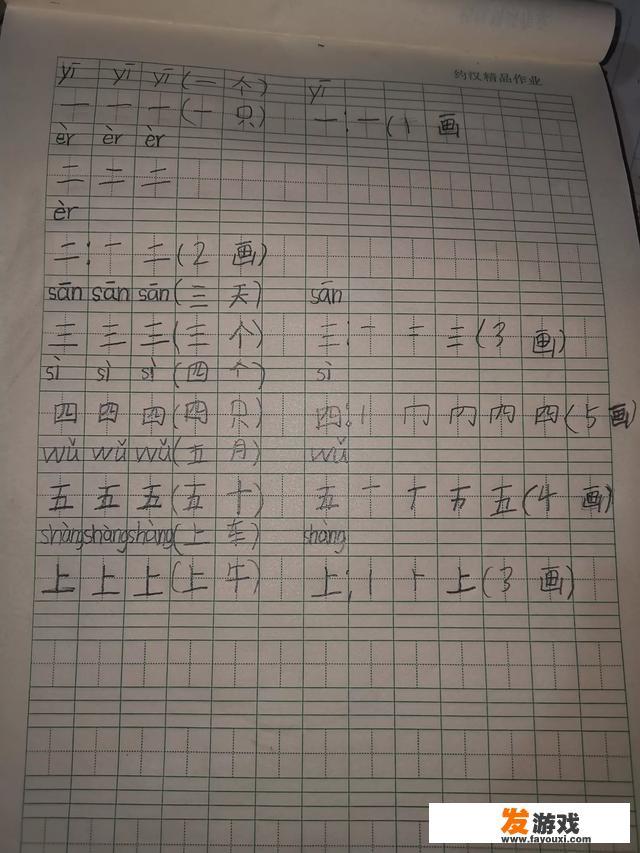 约汉精品作业
yī yī yī (一 个) yī
一 一 一 (一 只) 一: 一 (1 画
èr èr èr
二 二 二
èr
二: 一 二 (2 画)
sān sān sān (三 天) sān
三 三 三 (三 个) 三: 一 二 三 (3 画)
sì sì sì (四 个) sì
四 四 四 (四 只) 四: 丨 冂 四 (5 画)
wǔ wǔ wǔ (五 月) wǔ
五 五 五 (五 十) 五 一 丅 五 (4 画)
shàng shàng shàng (上 车) shàng
上 上 上 (上 午) 上: 丨 ⺊ 上 (3 画)
发游戏
www.fayouxi.com